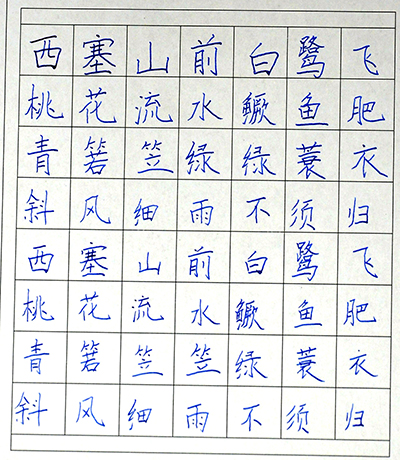 西塞山前白鹭飞
桃花流水鳜鱼肥
青箬笠绿绿蓑衣
斜风细雨不须归
西塞山前白鹭飞
桃花流水鳜鱼肥
青箬笠笠绿蓑衣
斜风细雨不须归